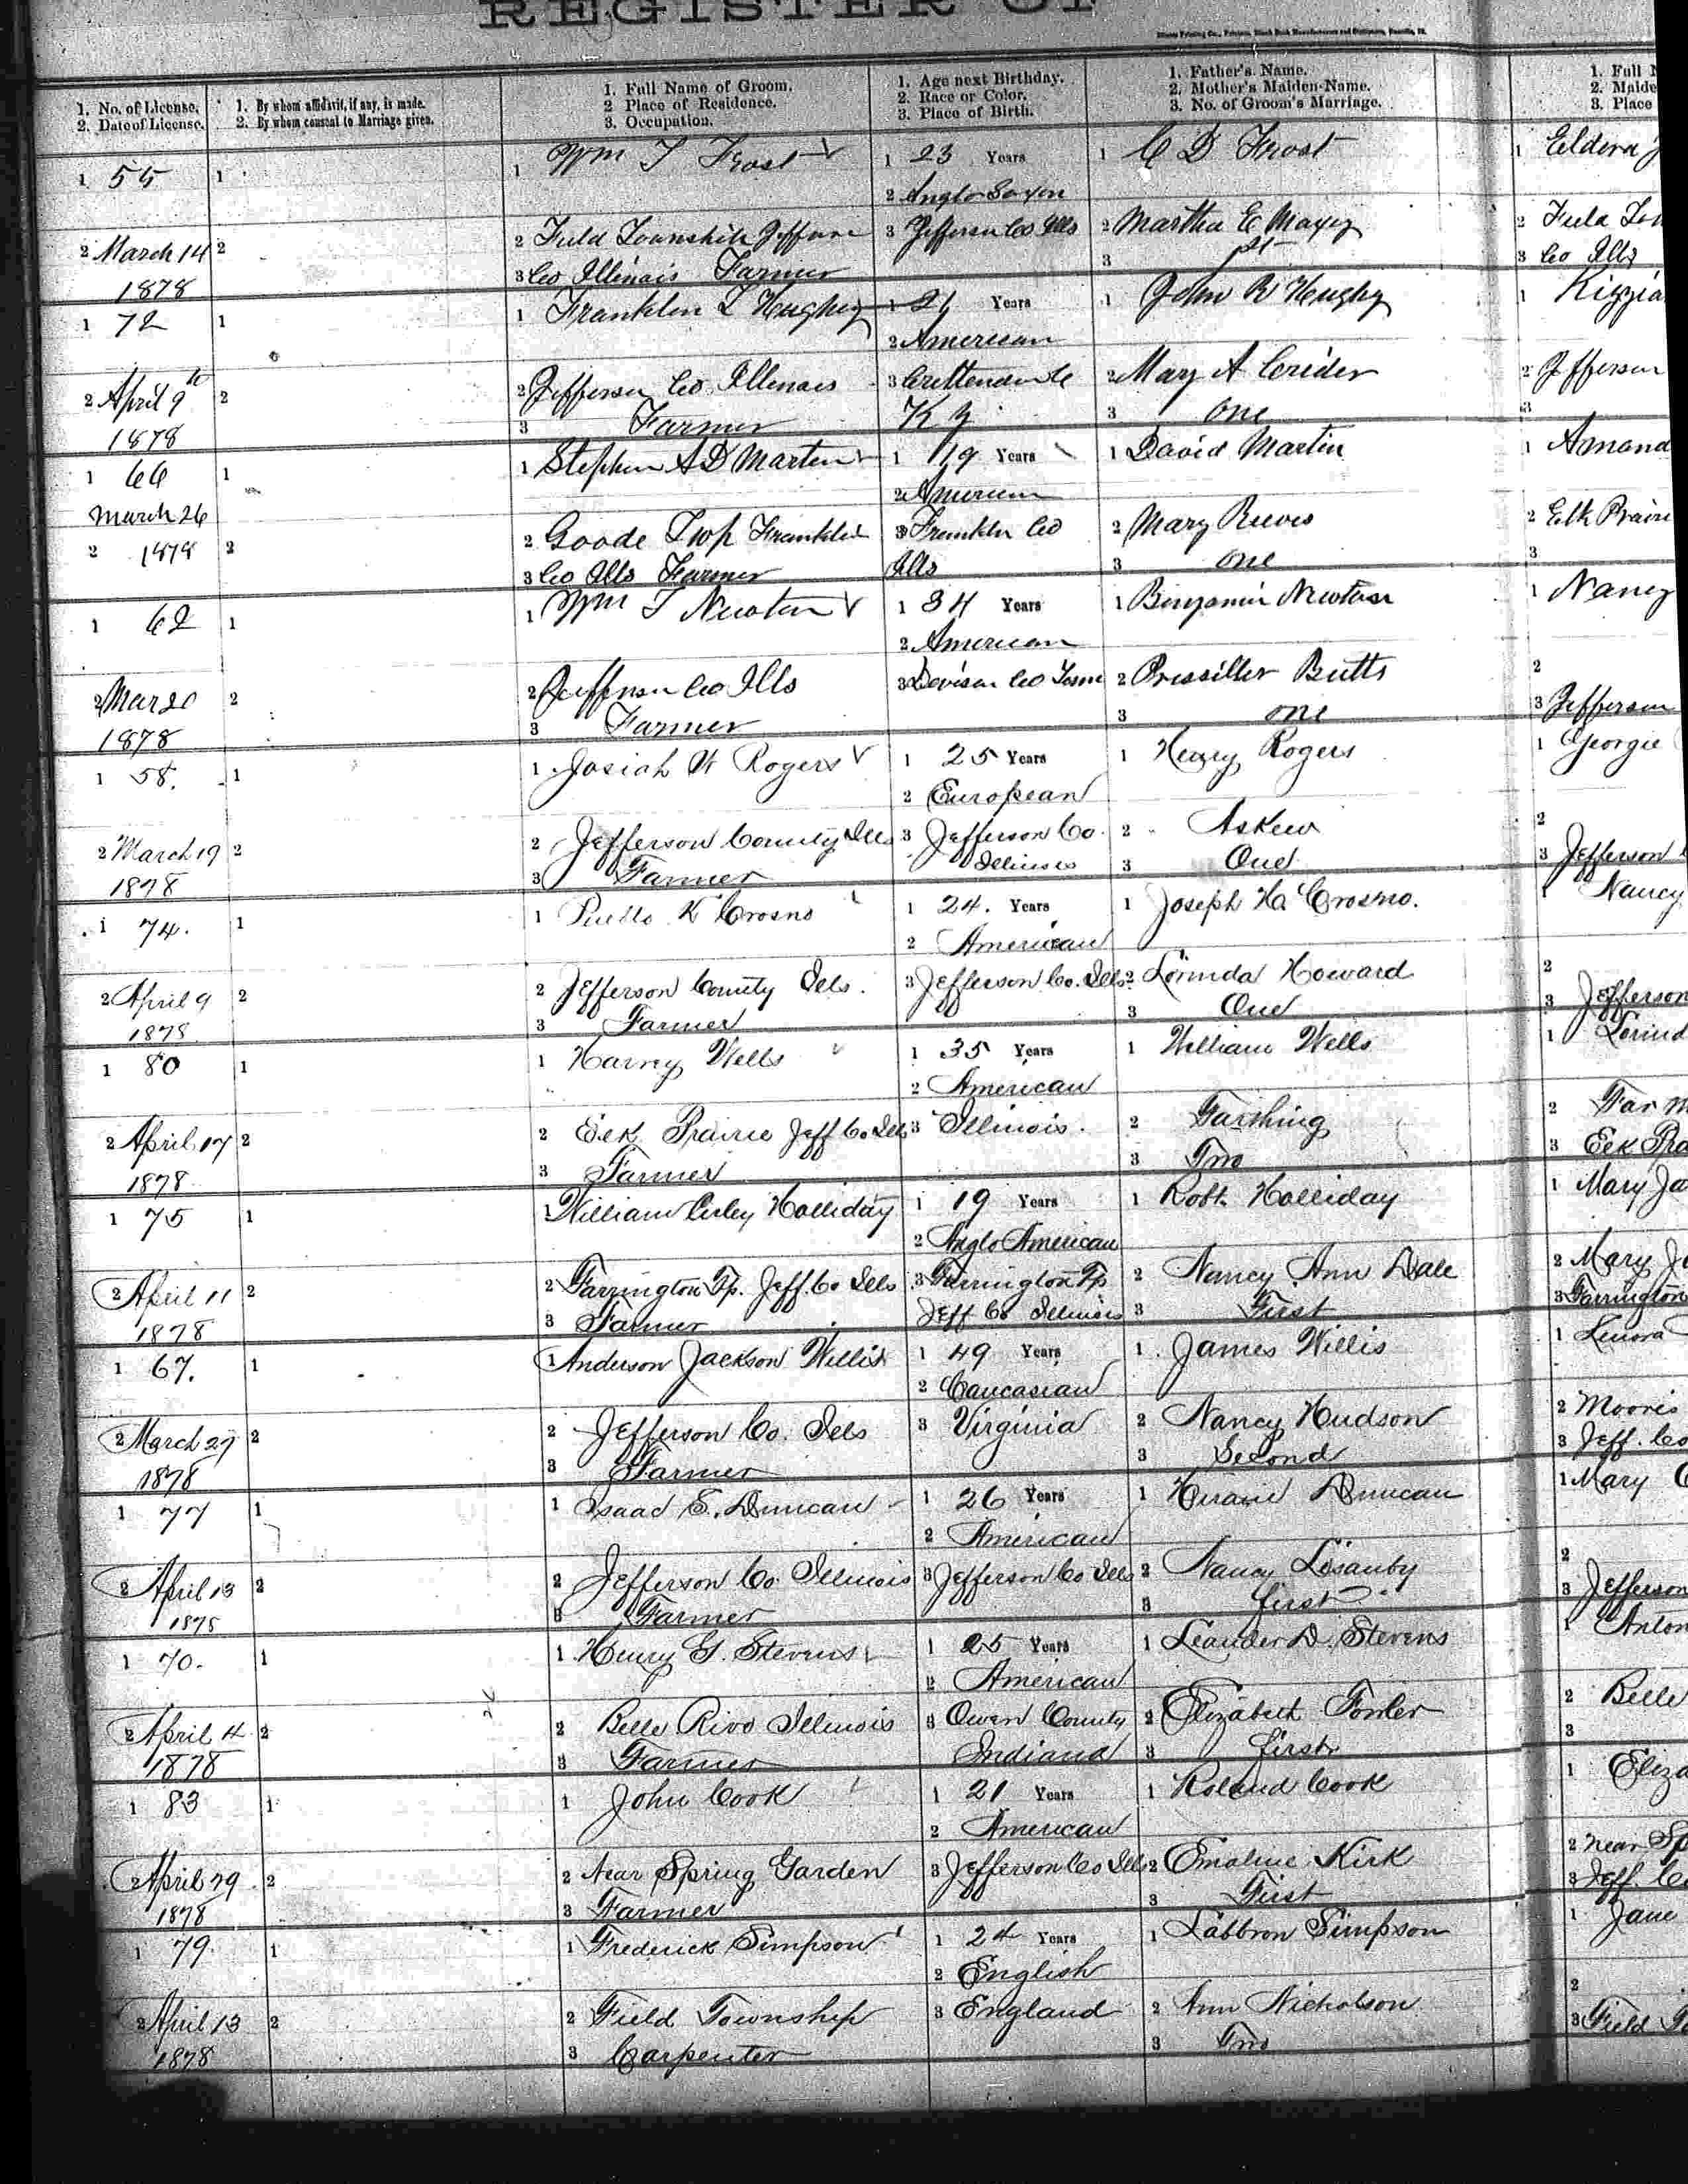 REGISTER OF
1. No. of License.
2. Date of License.
1. By whom affidavit, if any, is made.
2. By whom consent to Marriage given.
1. Full Name of Groom.
2 Place of Residence.
3. Occupation.
1. Age next Birthday.
2. Race or Color.
3. Place of Birth.
1. Father's Name.
2. Mother's Maiden-Name.
3. No. of Groom's Marriage.
1. Full
2. Maide
3. Place
1 55 1 1 Wm T Frost 1 23 Years 1 C D Frost 1 Eldora
2 Anglo Saxon
2 March 14 2 2 Field Township Jefferson 3 Jefferson Co Ills 2 Martha E 2 Field
1878 3 Co Illinois Farmer 3 1st 3 Co Ills
1 72 1 1 Franklin L Hughey 1 Years 1 John R Hughy 1
2 American
2 April 9th 2 2 Jefferson Co Illinois 3 Crittenden Co 2 Mary A Crider 2 Jefferson
1878 3 Farmer Ky 3 one 3
1 66 1 1 Stephen A D Martin 1 19 Years 1 David Martin 1 Amand
2 American
March 26
2 1878 2 2 Goode Twp Franklin 3 Franklin Co 2 Mary Reeves 2 Elk Prairi
3 Co Ills Farmer Ills 3 one 3
1 62 1 1 Wm T Newton 1 34 Years 1 Benjamin Newton 1 Nancy
2 American
2 Mar 20 2 2 Jefferson Co Ills 3 Co Tenn 2 Prissiller Butts 2
1878 3 Farmer 3 one 3 Jefferson
1 58. 1 1 Josiah W Rogers 1 25 Years 1 Henry Rogers 1 Georgie
2 European
2 March 19 2 2 Jefferson County Ills 3 Jefferson Co. 2 Askew 2
1878 3 Farmer Illinois 3 One 3 Jefferson
1 74. 1 1 K Crosno 1 24. Years 1 Joseph H. Crosno. 1 Nancy
2 American
2 April 9 2 2 Jefferson County Ills. 3 Jefferson Co. Ills. 2 Howard 2
1878 3 Farmer 3 One 3 Jefferson
1 80 1 1 Harvey Wells 1 35 Years 1 William Wells 1
2 American
2 April 17 2 2 Elk Prairie Jeff Co Ills 3 Illinois. 2 Farthing 2 Far
1878 3 Farmer 3 Two 3 Elk Pra
1 75 1 1 William Holliday 1 19 Years 1 Robt. Holliday 1 Mary Ja
2 Anglo American
2 April 11 2 2 Farrington Tp. Jeff. Co Ills 3 Farrington Tp 2 Nancy Ann Dale 2 Mary J
1878 3 Farmer Jeff Co Illinois 3 First 3 Farrington
1 67. 1 1 Anderson Jackson Willis 1 49 Years 1 James Willis 1 Lenora
2 Caucasian
2 March 27 2 2 Jefferson Co. Ills 3 Virginia 2 Nancy Hudson 2 Moores
1878 3 Farmer 3 Second 3 Jeff. Co
1 77 1 1 Isaac S. Duncan 1 26 Years 1 Hiram Duncan 1 Mary
2 American
2 April 13 2 2 Jefferson Co. Illinois 3 Jefferson Co Ills 2 Nancy 2
1878 3 Farmer 3 first 3 Jefferson
1 70. 1 1 Henry G. Stevens 1 25 Years 1 Leander D. Stevens 1 Anton
2 American
2 April 4 2 2 Belle Rive Illinois 3 Owen County 2 Elizabeth Fowler 2 Belle
1878 3 Farmer Indiana 3 first 3
1 83 1 1 John Cook 1 21 Years 1 Roland Cook 1 Eliza
2 American
2 April 29 2 2 Near Spring Garden 3 Jefferson Co Ills 2 Emaline Kirk 2 near Sp
1878 3 Farmer 3 First 3 Jeff. Co
1 79. 1 1 Frederick Simpson 1 24 Years 1 Simpson 1 Jane
2 English
2 April 13 2 2 Field Township 3 England 2 Ann Nicholson 2
1878 3 Carpenter 3 Two 3 Field